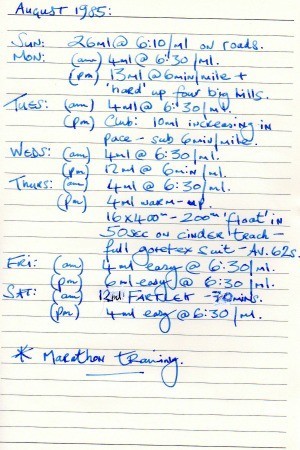 AUGUST 1985:
SUN: 26ml @ 6:10/ml on roads.
MON: (am) 4ml @ 6:30/ml.
(pm) 13ml @ 6min/mile +
'hard' up four big hills.
TUES: (am) 4ml @ 6:30/ml.
(pm) Club: 10ml increasing in
pace - sub 6min/mile.
WEDS: (am) 4ml @ 6:30/ml.
(pm) 12ml @ 6min/ml.
THURS: (am) 4ml @ 6:30/ml.
(pm) 4ml warm-up
16x400m - 200m 'float' in
50sec on cinder track -
full goretex suit - AV. 62s.
FRI: (am) 4ml easy @ 6:30/ml.
(pm) 6ml easy @ 6:30/ml.
SAT: (am) 12ml FARTLEK - 70mins.
(pm) 4ml easy @ 6:30/ml.
* Marathon training.